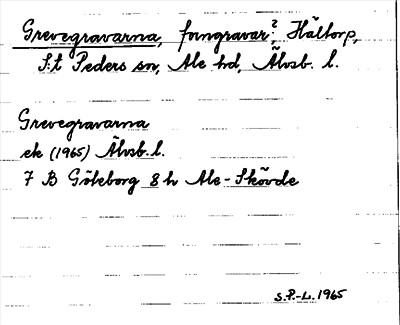 Grevegravarna, forngravar?; Hältorp,
S:t Peders sn, Ale hd, Älvsb. l.
Grevegravarna
ek (1965) Älvsb. l.
7 B Göteborg 8 h Ale-Skövde
S.P.-L. 1965